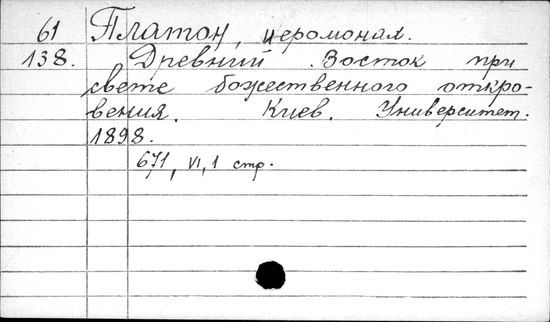 61 Платон, иеромонах.
138. Древний Восток при
свете божественного откро-
вения. Киев. Университет.
1898.
671, VI, 1 стр.